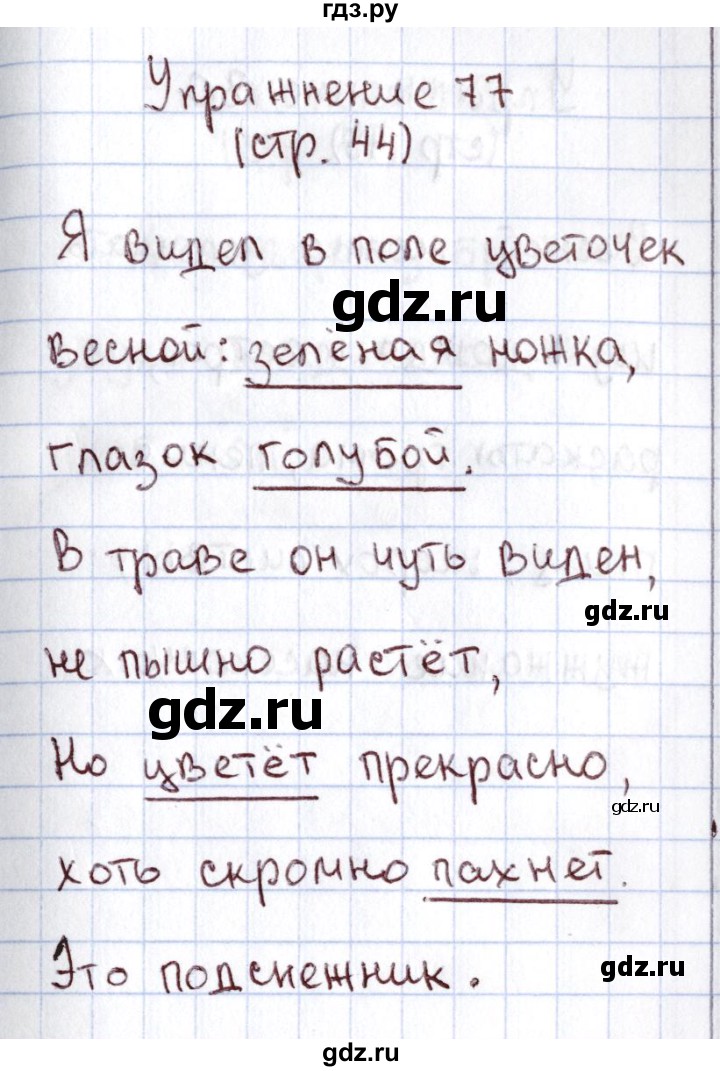 гдз.ру
Упражнение 77
(стр. 44)
Я видел в поле цветочек
gdz.ru
весной: зелёная ножка,
глазок голубой.
В траве он чуть виден,
gdz.ru
не пышно растёт,
gdz.ru
Но цветёт прекрасно,
gdz.ru
хоть скромно пахнет.
Это подснежник.
gdz.ru
gdz.ru